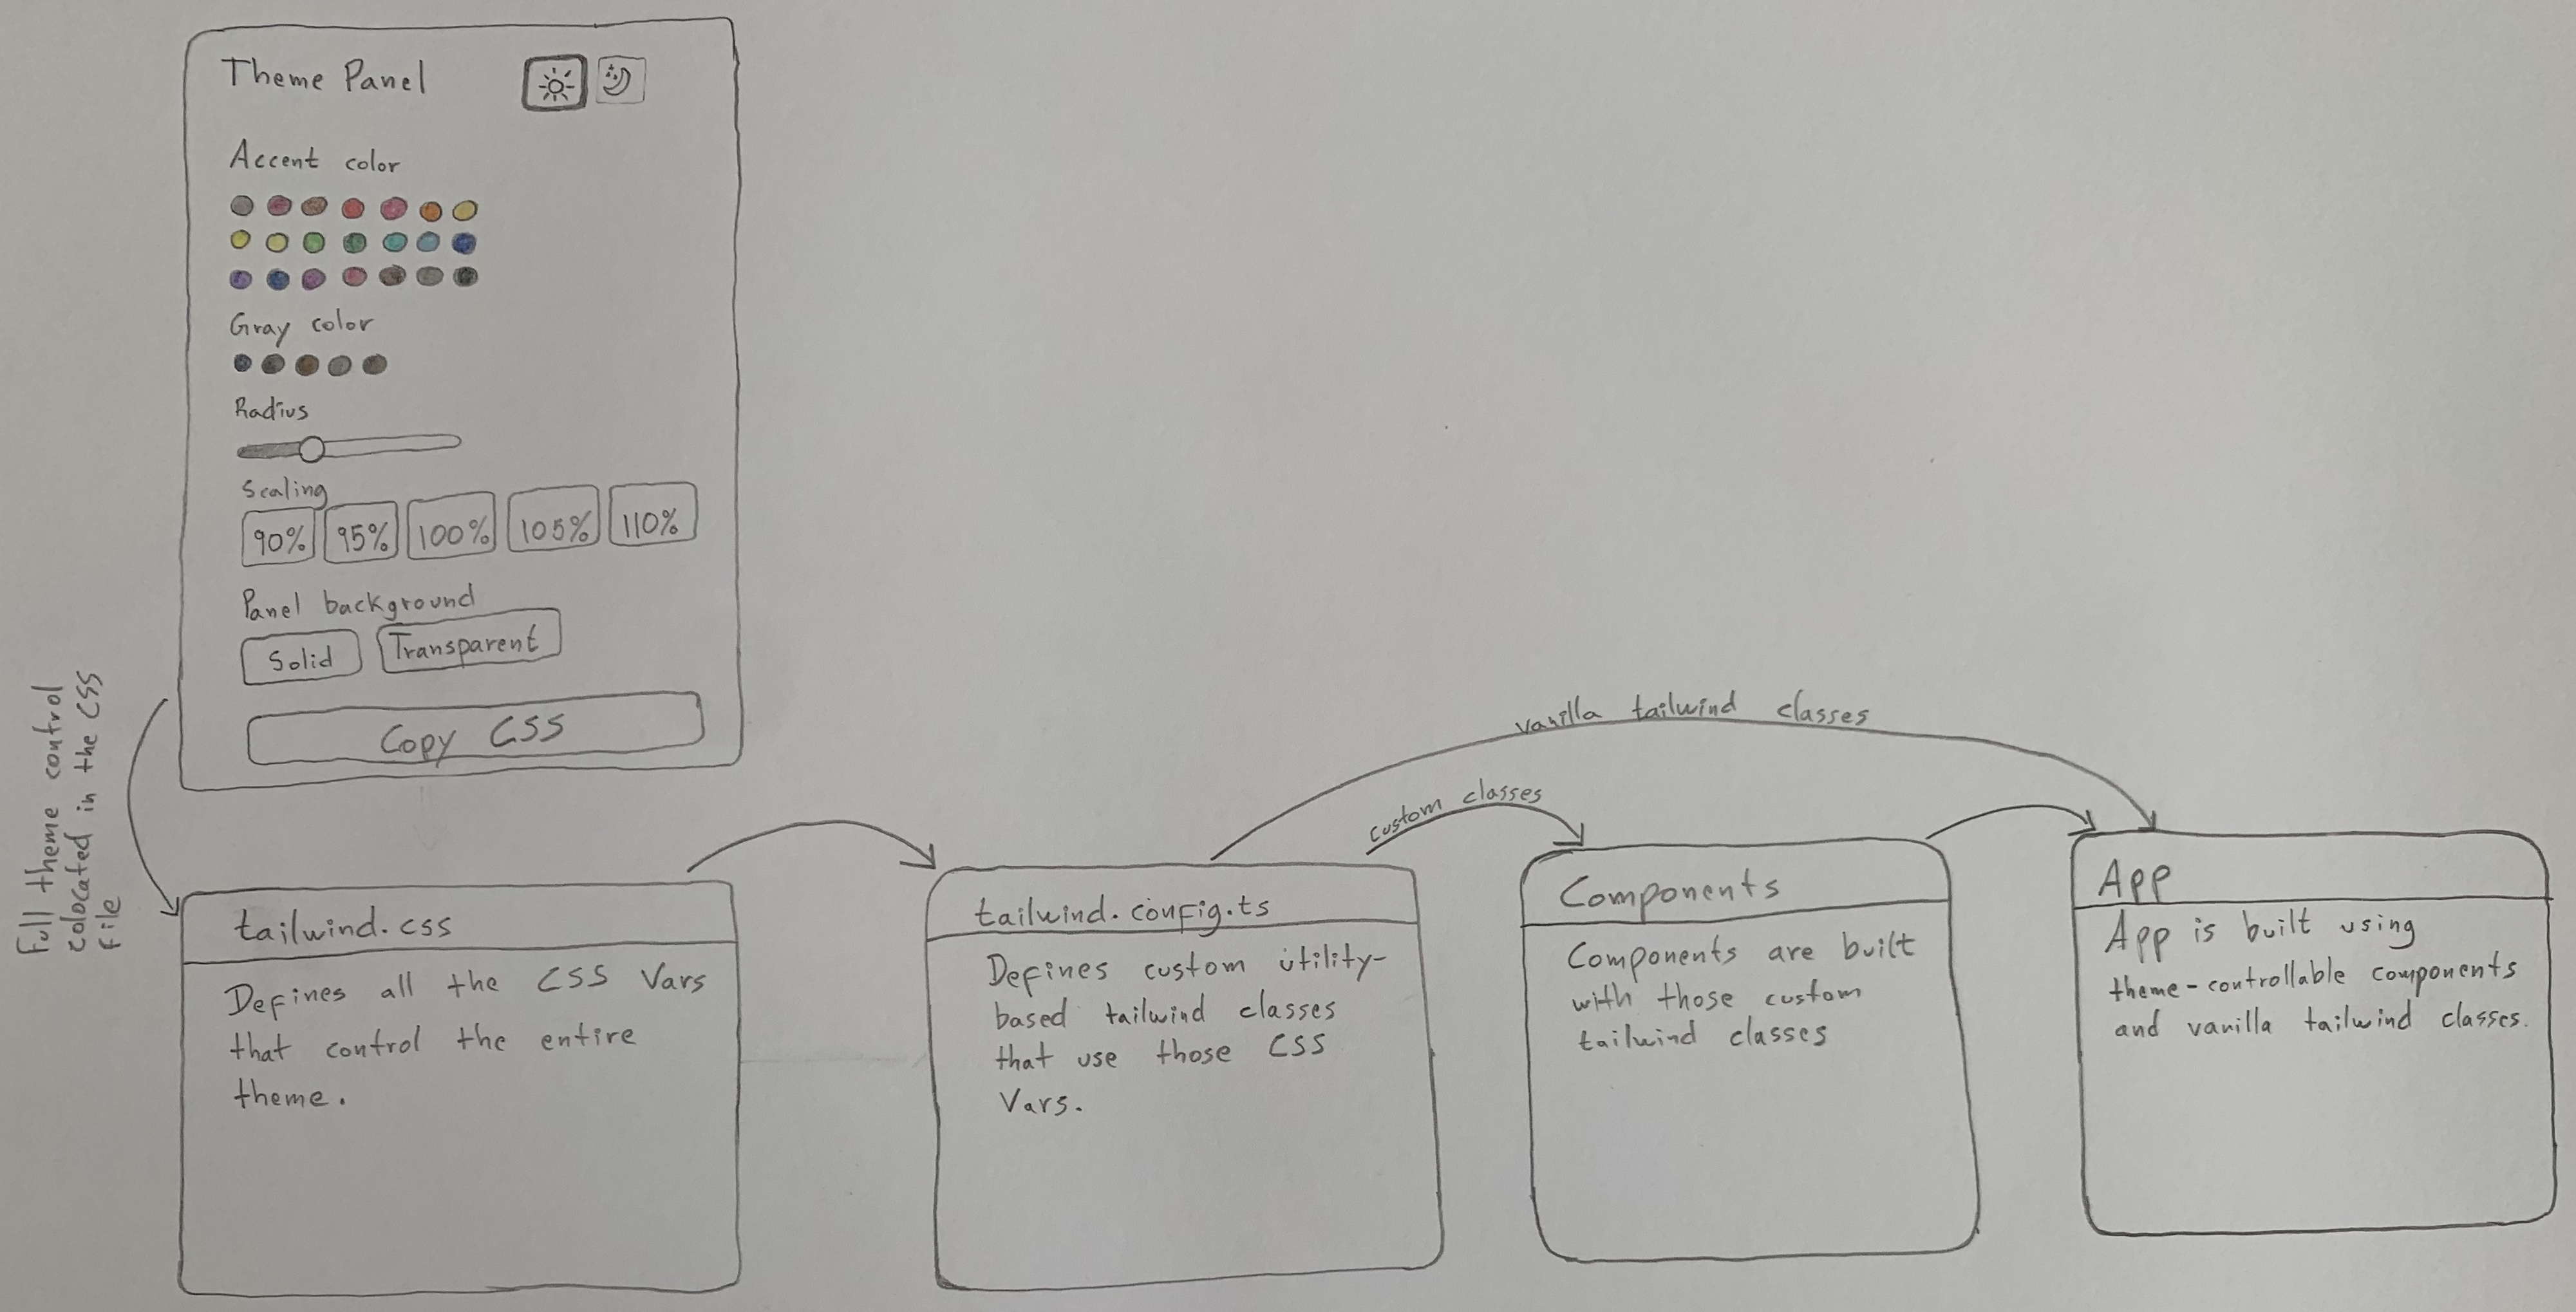 Theme Panel
Accent color
Gray color
Radius
Scaling
90% 95% 100% 105% 110%
Panel background
Solid Transparent
Copy CSS
Full theme control
colocated in the CSS
file
tailwind.css
Defines all the CSS Vars
that control the entire
theme.
tailwind.config.ts
Defines custom utility-
based tailwind classes
that use those CSS
Vars.
vanilla tailwind classes
custom classes
Components
Components are built
with those custom
tailwind classes
App
App is built using
theme-controllable components
and vanilla tailwind classes.